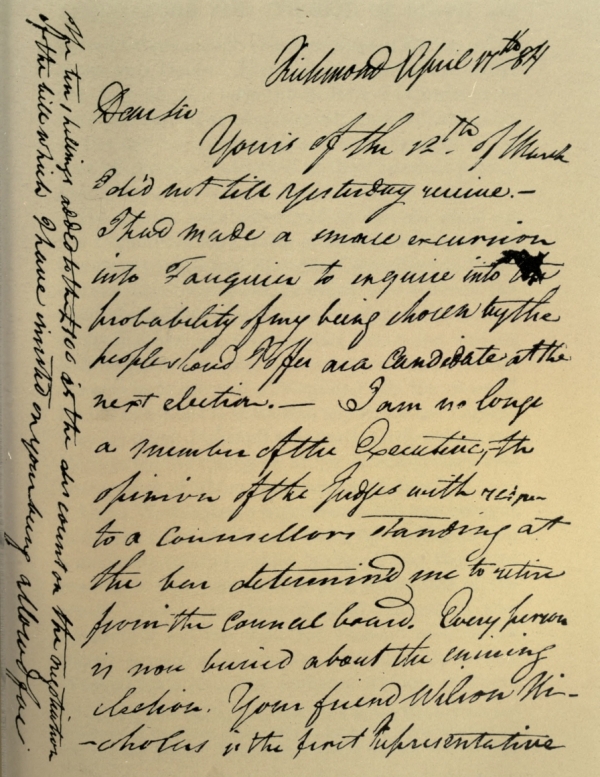 Richmond April 17th 84
Dear sir
Yours of the 12th of March
I did not till yesterday receive. —
I had made a small excursion
into Fauquier to enquire into the
probability of my being chosen by the
people shoud I offer as a candidate at the
next election. — I am no longe
a member of the Executive, the
opinion of the Judges with respe
to a counsellors standing at
the bar determined me to retire
from the council board. Every person
is now buried about the ensuing
election. Your friend Wilson Ni-
-cholas is the first Representative
The ten shillings added to the £100 is the discount on the
of the bill which I have insisted on your being allowed for